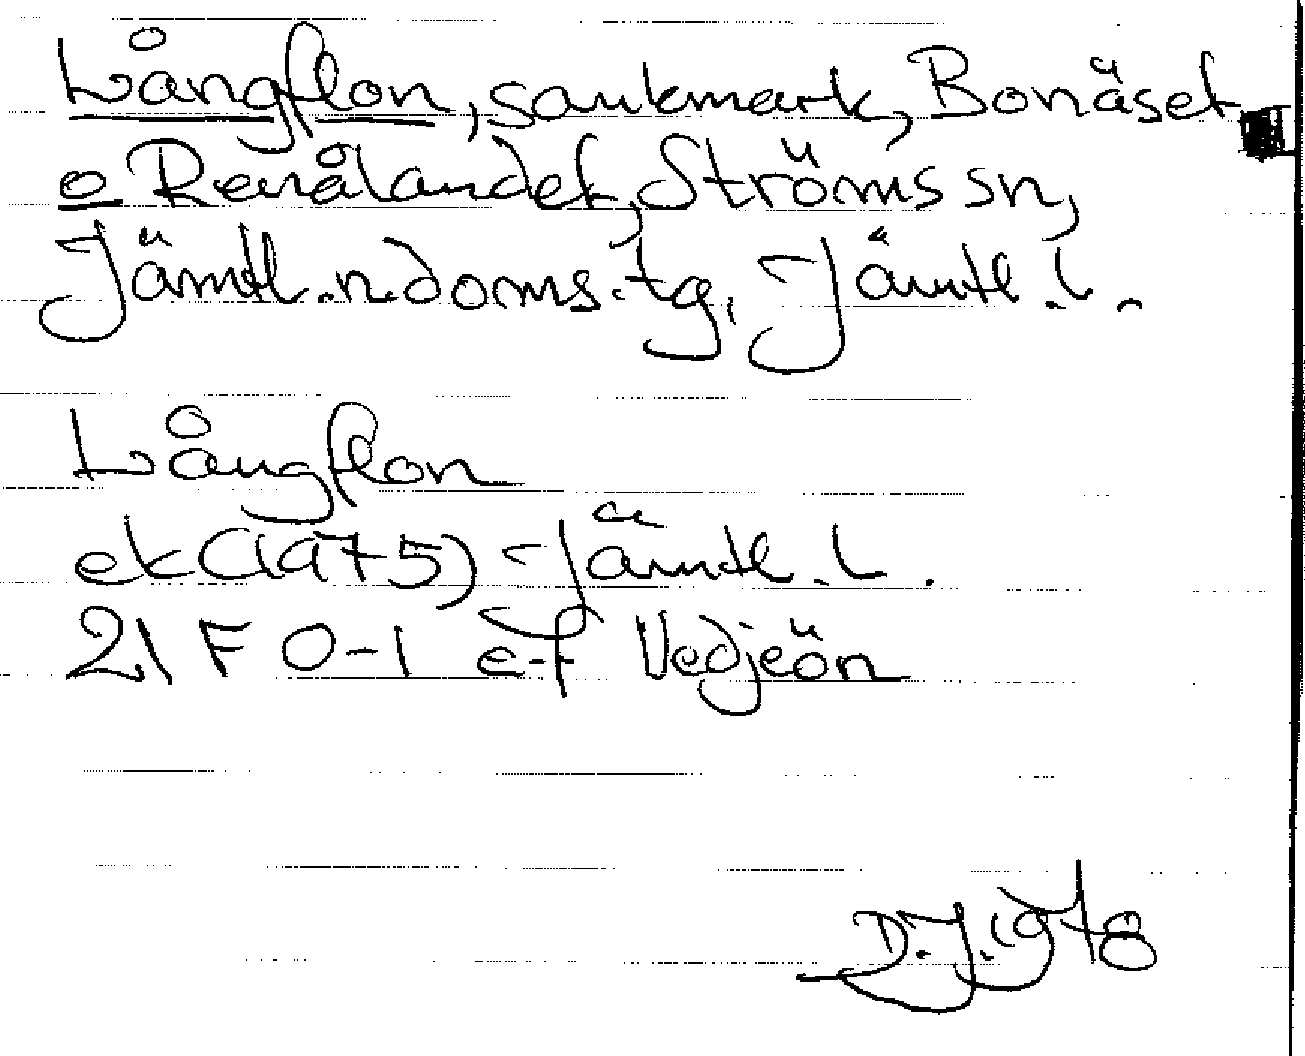 Långflon, sankmark, Bonäset
o Renålandet, Ströms sn,
Jämtl.n.doms.tg, Jämtl.l.
Långflon
ek (1975) Jämtl.l.
21 F 0-1 e-f Vedjeön
D.J. 1978